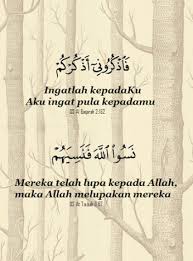 فَاذْكُرُونِيٓ أَذْكُرْكُمْ
Ingatlah kepadaKu
Aku ingat pula kepadamu
QS Al Baqarah 2:152
نَسُوا اللَّهَ فَنَسِيَهُمْ
Mereka telah lupa kepada Allah,
maka Allah melupakan mereka
QS At Taubah 9:67